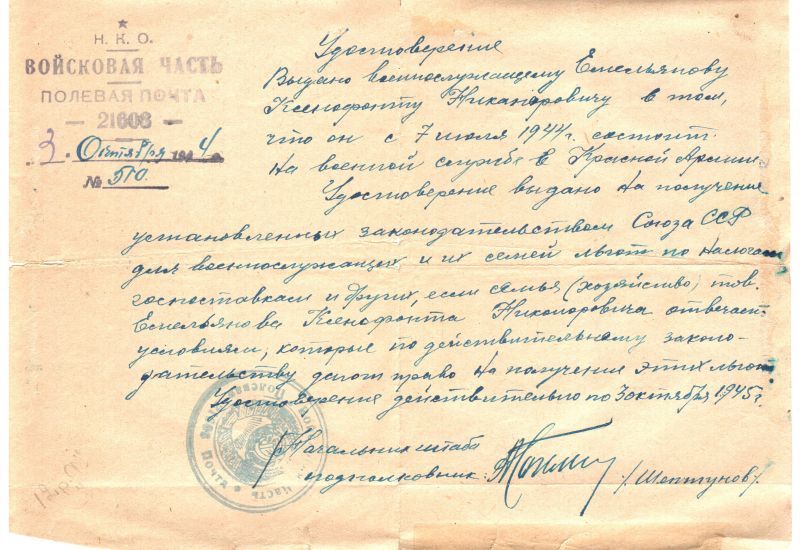 Н. К. О.
ВОЙСКОВАЯ ЧАСТЬ
ПОЛЕВАЯ ПОЧТА
— 21608 —
3. Октября 1944 г.
№ 510.
Удостоверение
Выдано военнослужащему Емельянову
Ксенофонту Никаноровичу в том,
что он с 7 июля 1944 г. состоит
на военной службе в Красной Армии.
Удостоверение выдано на получение
установленных законодательством Союза ССР
для военнослужащих и их семей льгот по налогам
госпоставкам и других, если семья (хозяйство) тов.
Емельянова Ксенофонта Никоноровича отвечает
условиям, которые по действительному законо-
дательству дают право на получение этих льгот
Удостоверение действительно по 3 октября 1945 г.
Начальник штаба
подполковник:
/Шептунов/.
Полевая Почта
Часть